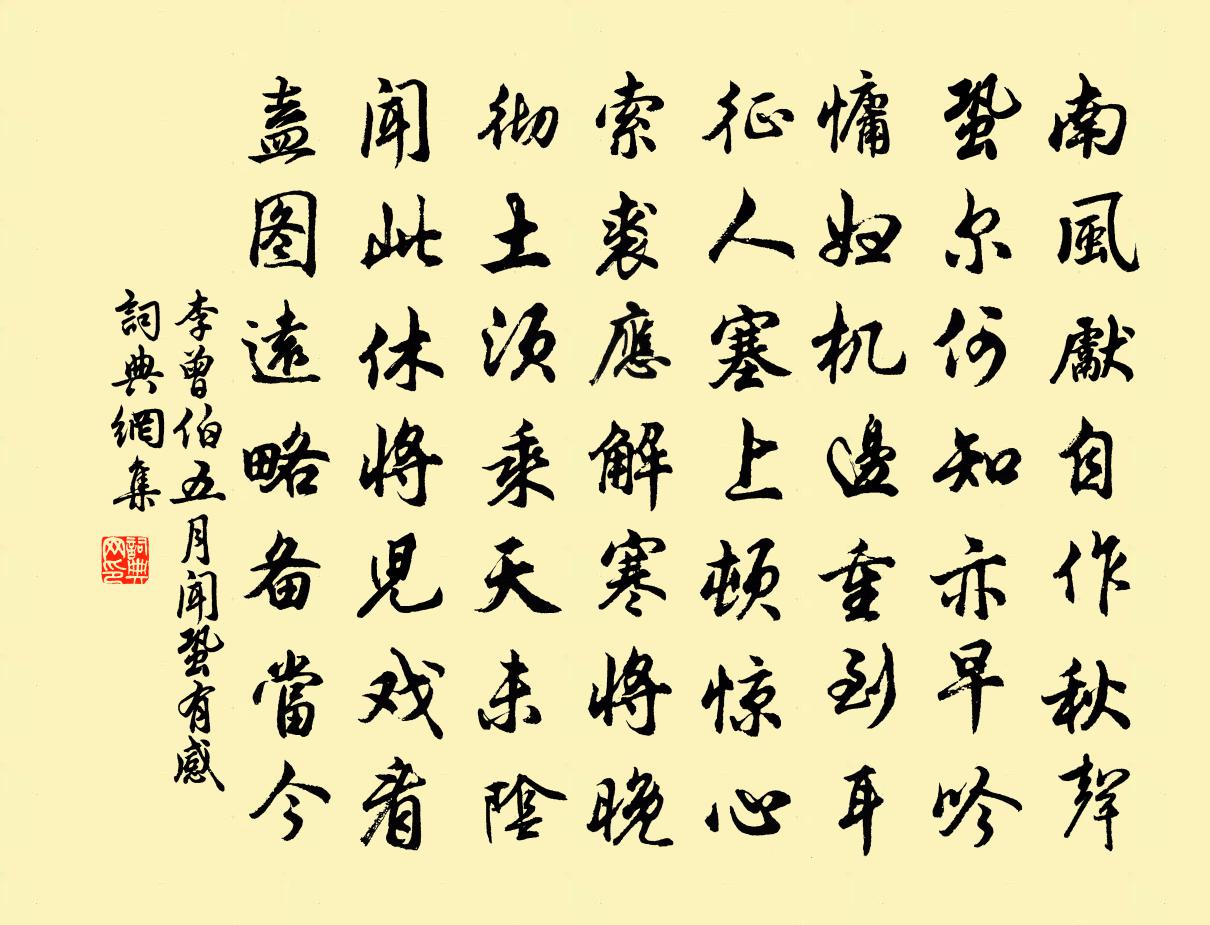 南風獻自作秋聲
蛩尔何知亦早吟
慵妇机邊重到耳
征人塞上頓惊心
索裘應解寒將晚
彻土須乘天未陰
聞此休將児戏看
盍图遠略备當今
李曾伯五月聞蛩有感
詞典網集
詞典网印